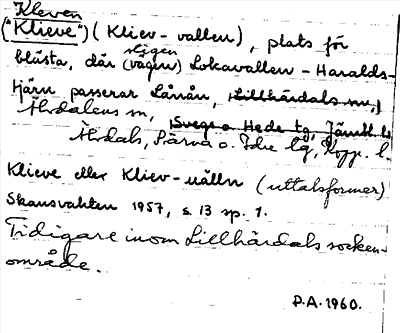 Kleven
("Klieve") (Kliev-vallen), plats för
stigen
blästa, där (vägen) Lokavallen - Haralds-
tjärn passerar Lånån, Lillhärdals sn,)
Älvdalens sn, Svegs o. Hede tg, Jämtl. l.
Älvdals, Särna o. Idre tg, Kopp. l.
Klieve eller Kliev-vålln (uttalsformer)
Skansvakten 1957, s. 13 sp. 1.
Tidigare inom Lillhärdals socken-
område.
P.A. 1960.